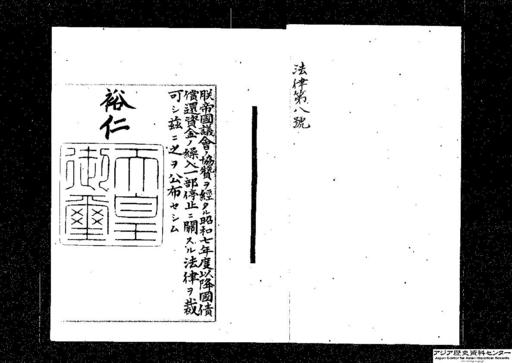 法律第八號
朕帝國議會ノ協贊ヲ經タル昭和七年度以降國債
償還資金ノ繰入一部停止ニ關スル法律ヲ裁
可シ茲ニ之ヲ公布セシム
裕仁
天皇
御璽
アジア歴史資料センター
Japan Center for Asian Historical Records